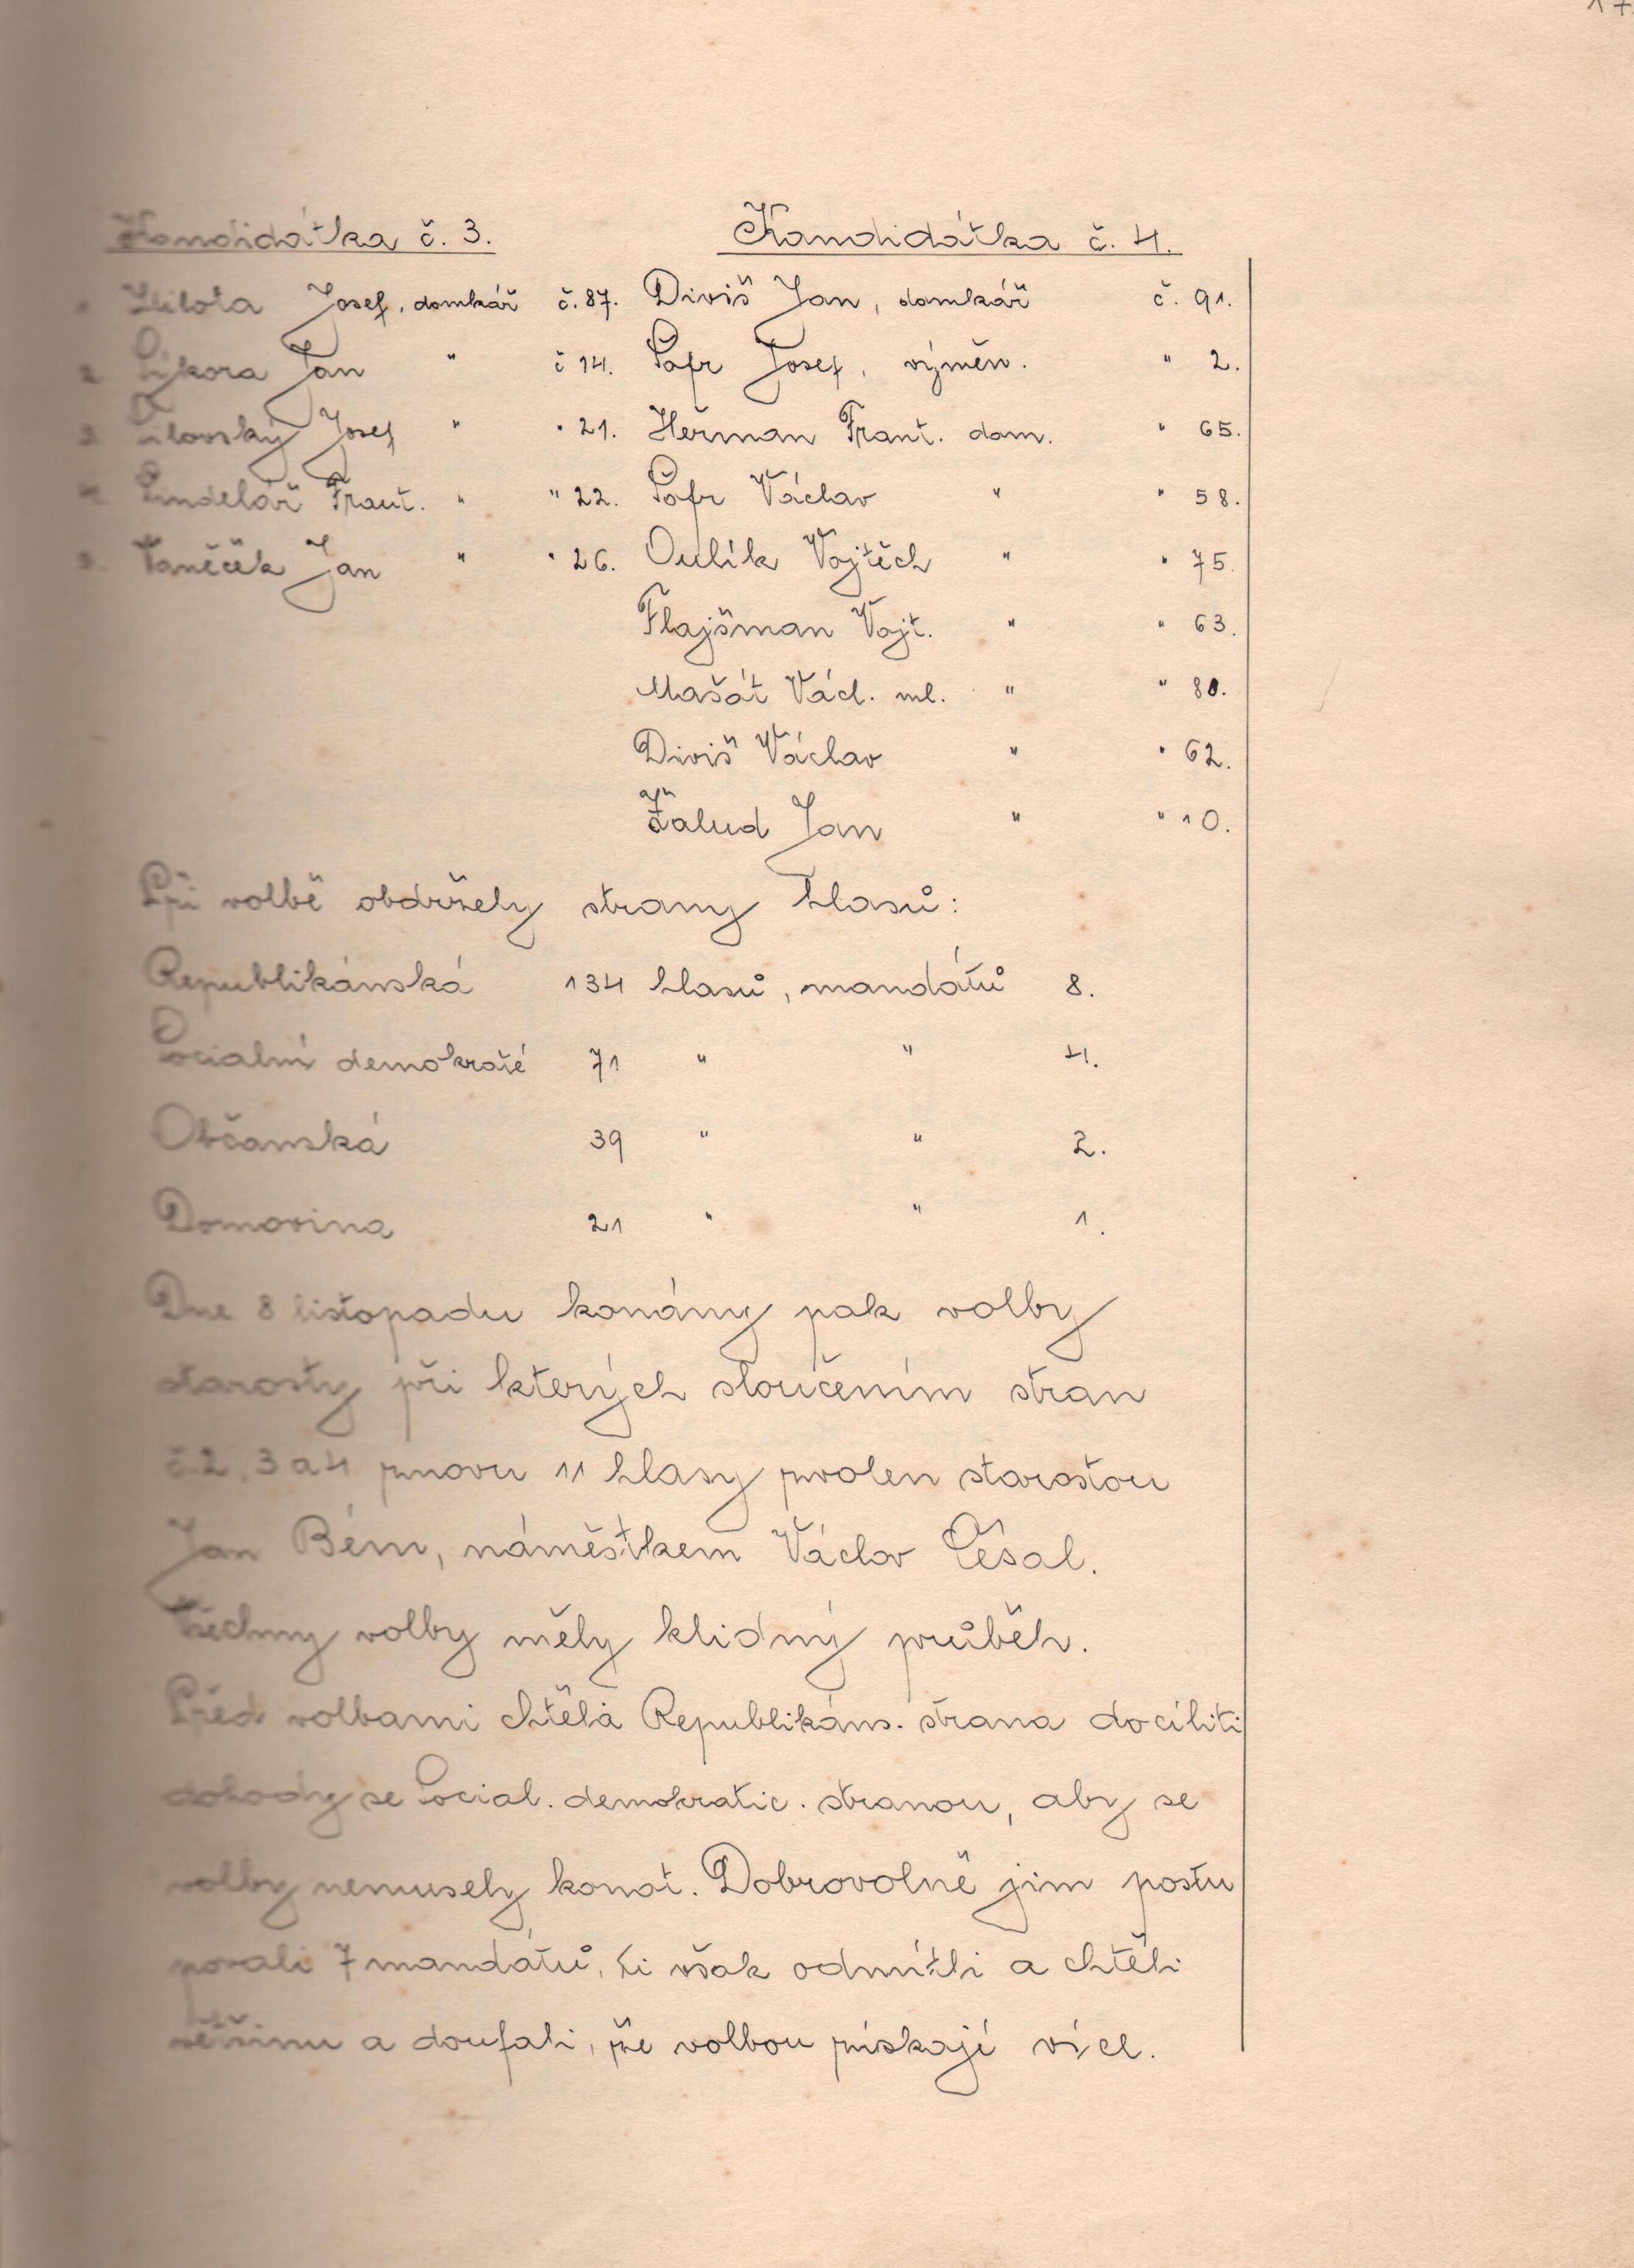 Kandidátka č. 3.
Josef, domkář č. 87.
2. Sýkora Jan " č 14.
3. Josef " " 21.
4. Šindelář Frant. " " 22.
5. Vaněček Jan " " 26.
Kandidátka č. 4.
Diviš Jan, domkář č. 91.
Šafr Josef, výměn. " 2.
Heřman Frant. dom. " 65.
Šafr Václav " " 58.
Oulík Vojtěch " " 75.
Flajšman Vojt. " " 63.
Mašát Václ. ml. " " 80.
Diviš Václav " " 62.
Žalud Jan " " 10.
Při volbě obdržely strany hlasů:
Republikánská 134 hlasů, mandátů 8.
Socialní demokraté 71 " " 4.
Občanská 39 " " 2.
Domovina 21 " " 1.
Dne 8 listopadu konány pak volby
starosty při kterých sloučením stran
č. 2, 3 a 4 znovu 11 hlasy zvolen starostou
Jan Bém, náměstkem Václav Césal.
Všechny volby měly klidný průběh.
Před volbami chtěla Republikáns. strana docíliti
dohody se Social. demokratic. stranou, aby se
volby nemusely konat. Dobrovolně jim postu
povali 7 mandátů, ti však odmítli a chtěli
většinu a doufali, že volbou získají více.